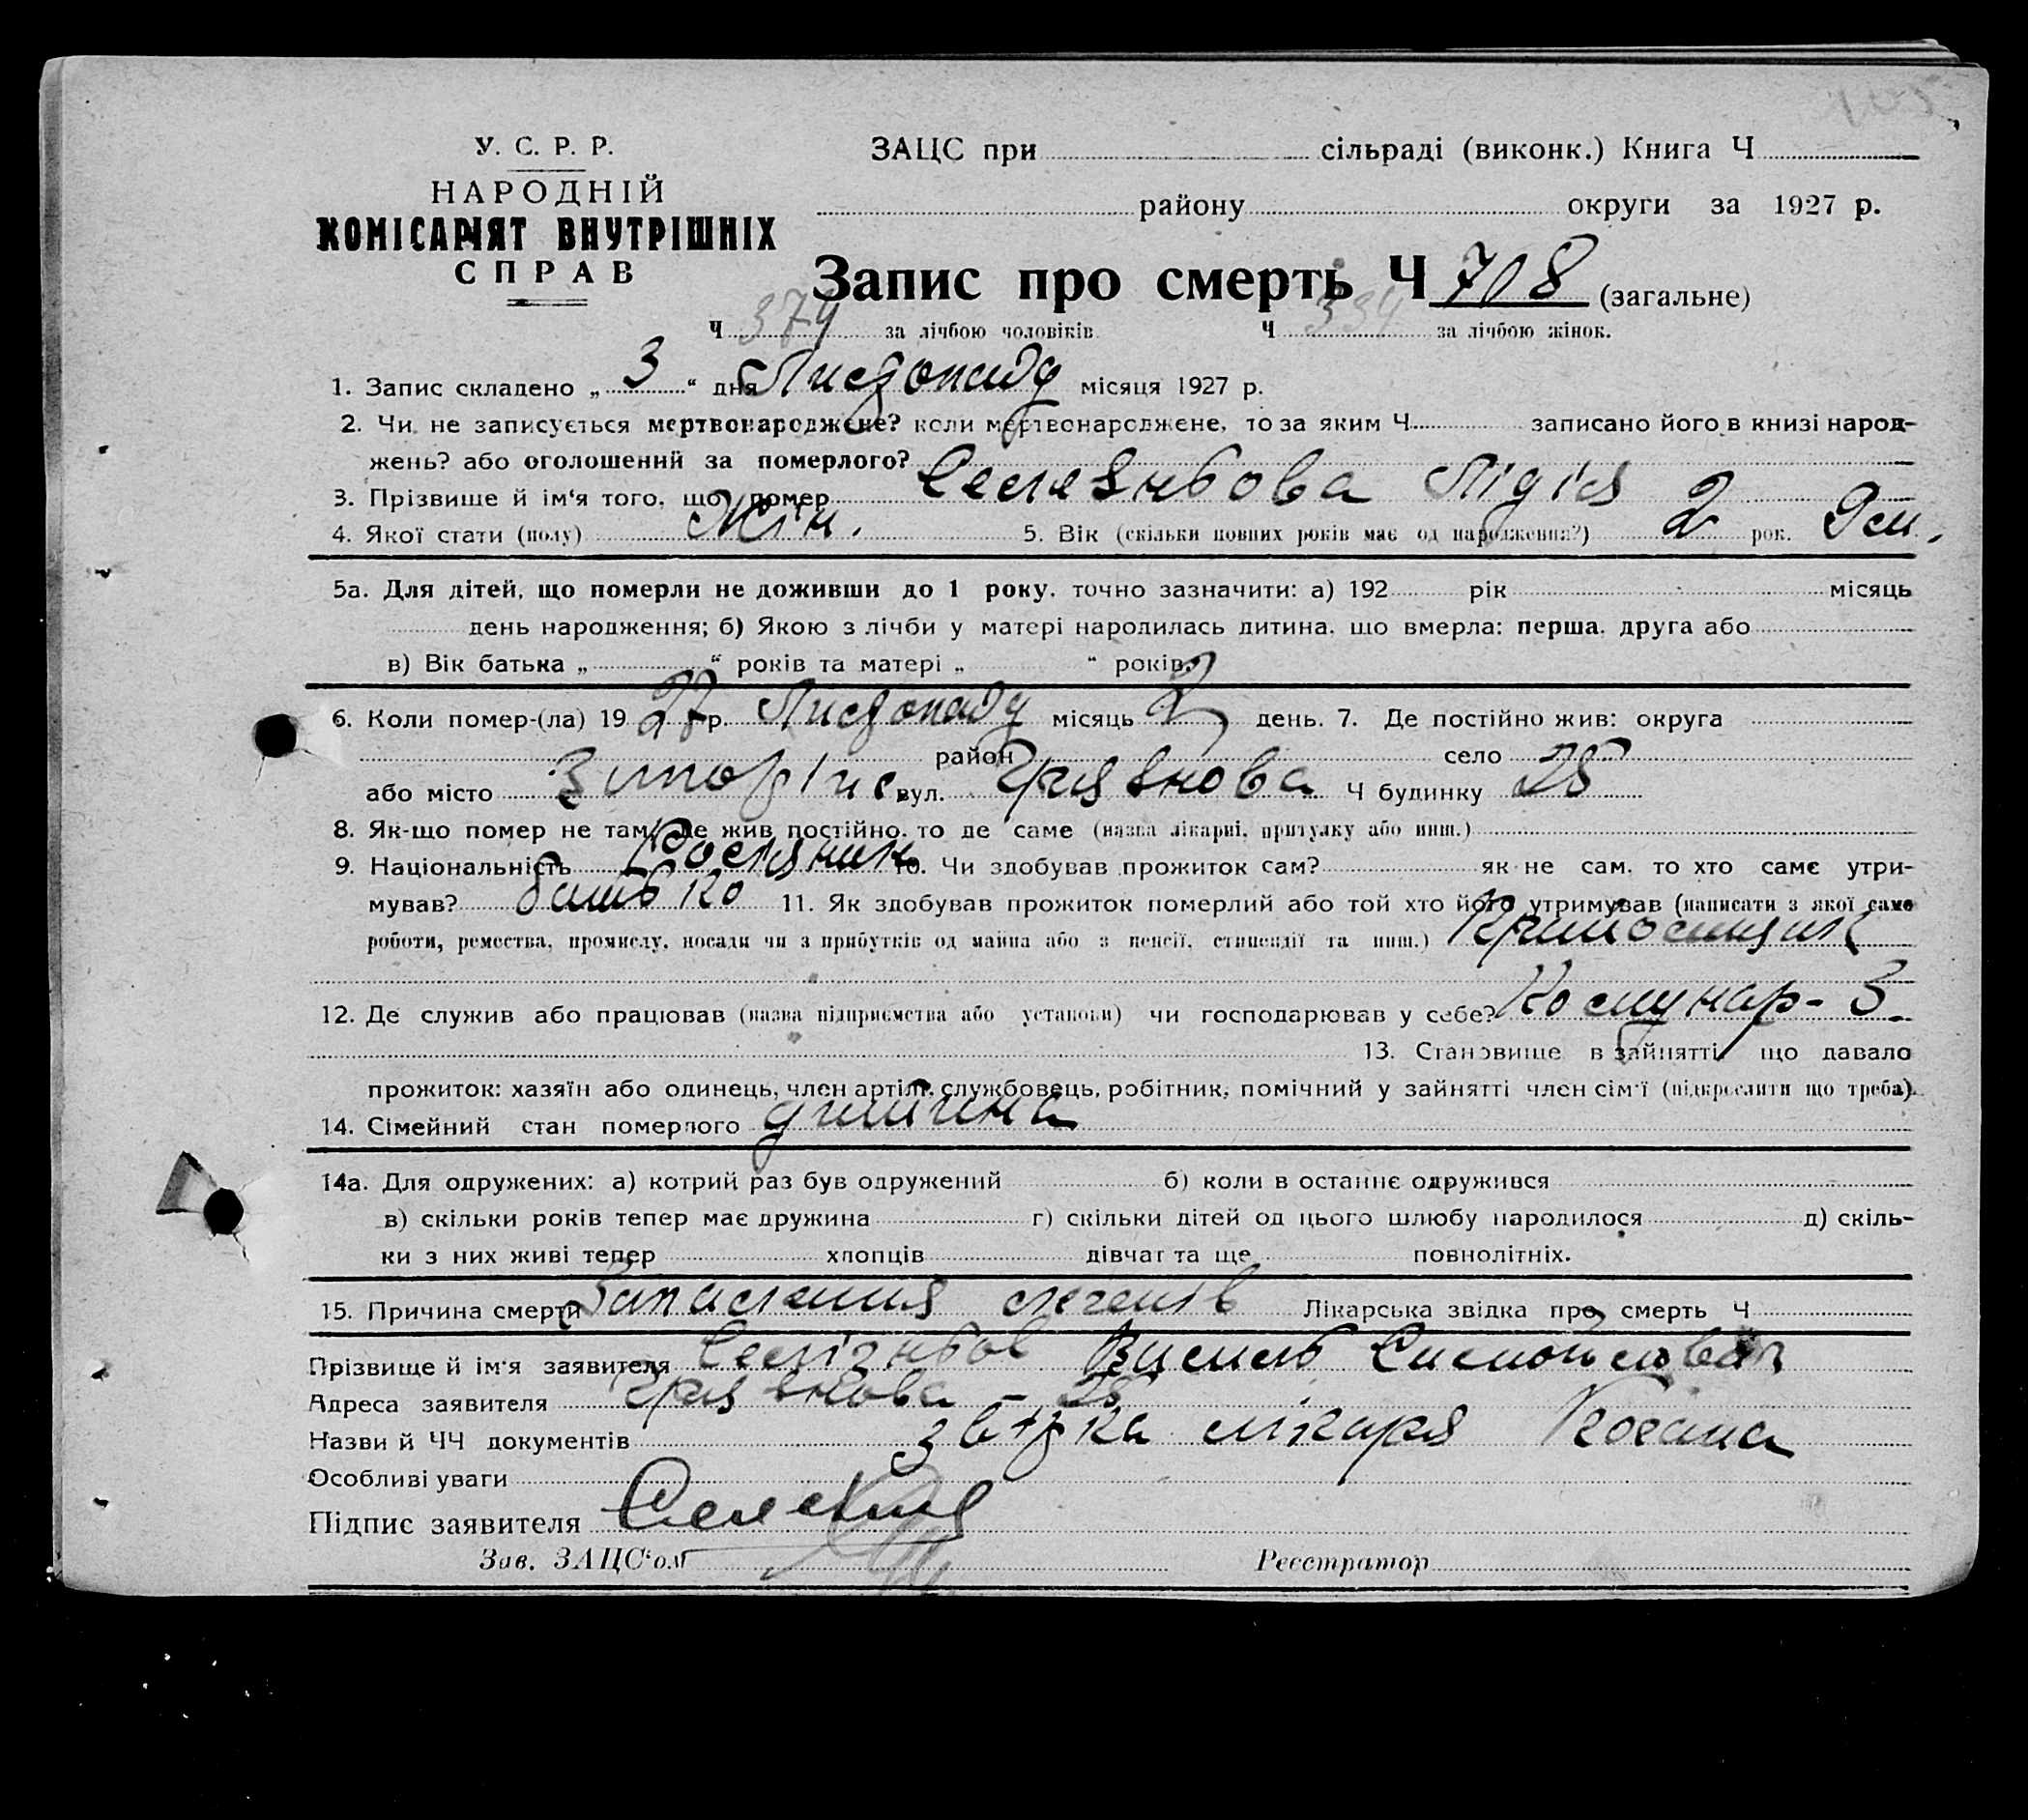 У. С. Р. Р.
НАРОДНІЙ
КОМІСАРІЯТ ВНУТРІШНІХ
СПРАВ
ЗАЦС при сільраді (виконк.) Книга Ч
району округи за 1927 р.
Запис про смерть Ч 708 (загальне)
Ч 374 за лічбою чоловіків Ч 334 за лічбою жінок.
1. Запис складено „ 3 “ дня Листопаду місяця 1927 р.
2. Чи не записується мертвонароджене? коли мертвонароджене, то за яким Ч записано його в книзі народ-
жень? або оголошений за померлого?
3. Прізвище й ім‘я того, що помер Селезньова Лідія
4. Якої стати (полу) Жін. 5. Вік (скільки повних років має од народження?) 2 рок. 9 м.
5а. Для дітей, що померли не доживши до 1 року. точно зазначити: а) 192 рік місяць
день народження; б) Якою з лічби у матері народилась дитина, що вмерла: перша, друга або
в) Вік батька „ “ років та матері „ “ років.
6. Коли помер-(ла) 19 27 р. Листопаду місяць 2 день. 7. Де постійно жив: округа
район село
або місто Запоріжє вул. Грязнова Ч будинку 25
8. Як-що помер не там, де жив постійно, то де саме (назва лікарні, притулку або инш.)
9. Національність Росіянин 10. Чи здобував прожиток сам? як не сам, то хто саме утри-
мував? батько 11. Як здобував прожиток померлий або той хто його утримував (написати з якої саме
роботи, ремества, промислу, посади чи з прибутків од майна або з пенсії, стипендії та инш.)
12. Де служив або працював (назва підприємства або установи) чи господарював у себе? Комунар-З.
13. Становище в зайнятті, що давало
прожиток: хазяїн або одинець, член артілі, службовець, робітник, помічний у зайнятті член сім‘ї (підкреслити що треба).
14. Сімейний стан померлого дитина
14а. Для одружених: а) котрий раз був одружений б) коли в останнє одружився
в) скільки років тепер має дружина г) скільки дітей од цього шлюбу народилося д) скіль-
ки з них живі тепер хлопців дівчат та ще повнолітніх.
15. Причина смерти Запалення легенів Лікарська звідка про смерть Ч
Прізвище й ім‘я заявителя Селізньов Василь
Адреса заявителя Грязнова - 25
Назви й ЧЧ документів звідка лікаря Когана
Особливі уваги
Підпис заявителя
Зав. ЗАЦС‘ом Реєстратор